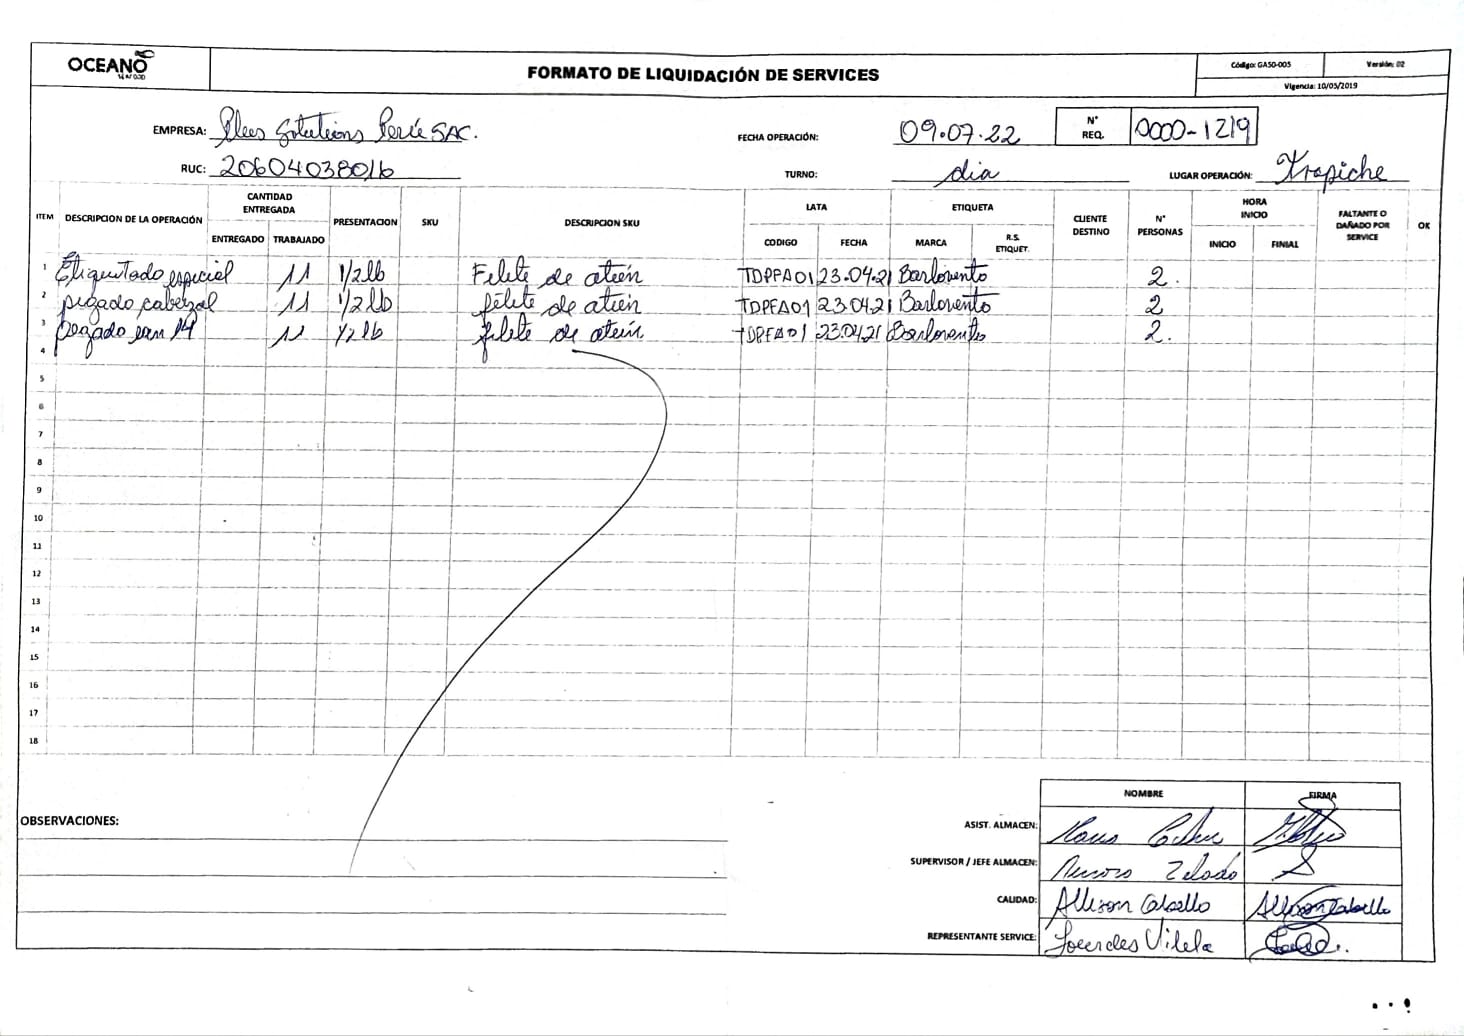 OCEANO
FORMATO DE LIQUIDACIÓN DE SERVICES
Código: GA50-005 Versión: 02
Vigencia: 10/05/2019
EMPRESA: Solutions Perú SAC.
FECHA OPERACIÓN: 09.07.22
N° REQ. 0000-1219
RUC: 20604038016
TURNO: dia
LUGAR OPERACIÓN: Trapiche
ITEM DESCRIPCION DE LA OPERACIÓN CANTIDAD ENTREGADA PRESENTACION SKU DESCRIPCION SKU LATA ETIQUETA CLIENTE DESTINO N° PERSONAS HORA INICIO FALTANTE O DAÑADO POR SERVICE OK
ENTREGADO TRABAJADO CODIGO FECHA MARCA R.S. ETIQUET. INICIO FINIAL
1 Etiquetado especial 11 1/2 lb Filete de atún TDPFA01 23.04.21 Barlovento 2.
2 pegado cabezal 11 1/2 lb filete de atún TDPFA01 23.04.21 Barlovento 2
3 pegado 11 1/2 lb filete de atún TDPFA01 23.04.21 Barlovento 2.
4
5
6
7
8
9
10
11
12
13
14
15
16
17
18
OBSERVACIONES:
NOMBRE FIRMA
ASIST. ALMACEN:
SUPERVISOR / JEFE ALMACEN: Zelado
CALIDAD: Allison Cabello
REPRESENTANTE SERVICE: Lourdes Vilela